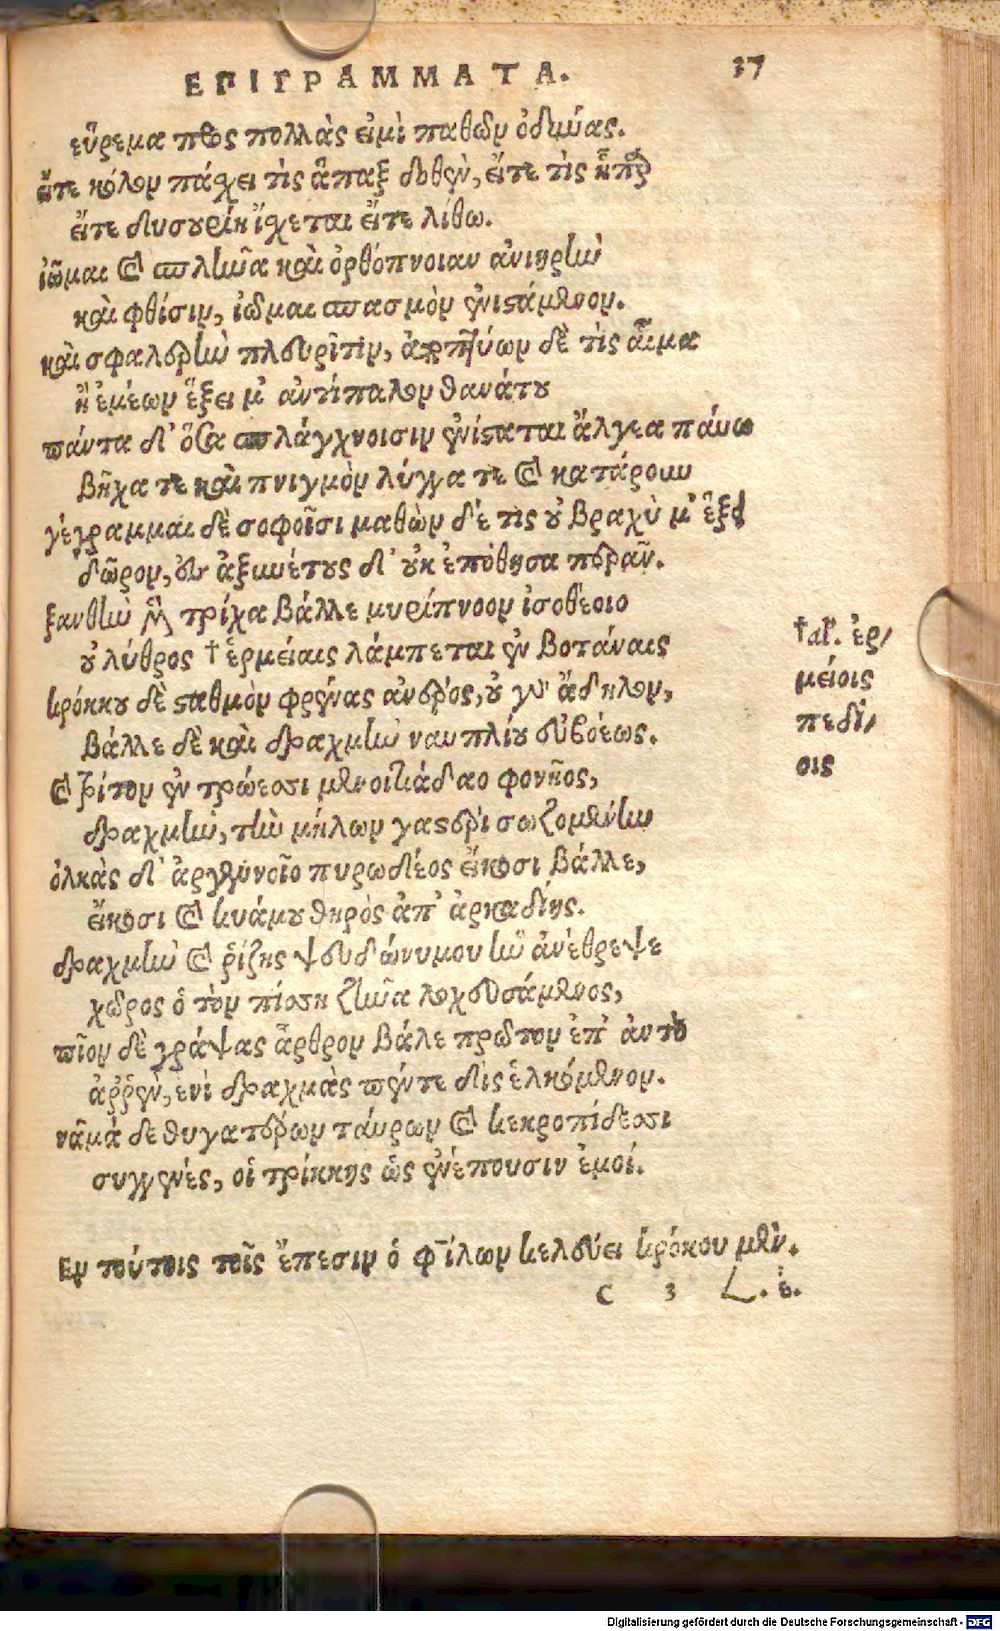 ΕΠΙΓΡΑΜΜΑΤΑ. 37
εὕρεμα πρὸς πολλὰς εἰμὶ παθῶν ὀδύνας.
εἴτε κόλον πάσχει τὶς ἅπαξ δοθὲν, εἴτε τὶς ἧπαρ
εἴτε δυσουρίη ἴσχεται εἴτε λίθω.
ἰῶμαι καὶ σπλῆνα καὶ ὀρθόπνοιαν ἀνιηρὴν
καὶ φθίσιν, ἰῶμαι σπασμὸν ἐνιστάμενον.
καὶ σφαλερὴν πλευρῖτιν, ἀποπτύων δὲ τὶς αἷμα
ἢ ἐμέων ἕξει μ' ἀντίπαλον θανάτου
πάντα δ' ὅσα σπλάγχνοισιν ἐνίσταται ἄλγεα παύω
βῆχα τε καὶ πνιγμὸν λύγγα τε καὶ κατάρουν
γέγραμμαι δὲ σοφοῖσι μαθὼν δέ τις οὐ βραχὺ μ' ἕξει
δῶρον, ἀξυνέτους δ' οὐκ ἐπόθησα περᾶν.
ξανθὴν μὲν τρίχα βάλλε μυρίπνοον ἰσοθέοιο
οὗ λύθρος † ἑρμείαις λάμπεται ἐν βοτάναις
κρόκου δὲ σταθμὸν φρένας ἀνέρος, οὐ γὰρ ἄδηλον,
βάλλε δὲ καὶ δραχμὴν ναυπλίου εὐβόεως.
καὶ τρίτον ἐν τρώεσσι μενοιτιάδαο φονῆος,
δραχμὴν, τὴν μήλων γαστέρι σωζομένην
ὁλκὰς δ' ἀργεννοῖο πυρωδέος εἴκοσι βάλλε,
εἴκοσι καὶ κυάμου θηρὸς ἀπ' ἀρκαδίης.
δραχμὴν καὶ ῥίζης ψευδώνυμου ἣν ἀνέθρεψε
χῶρος ὁ τὸν πίσση ζῆνα λοχευσάμενος,
πῖον δὲ γράψας ἄρθρον βάλε πρῶτον ἐπ' αὐτὸ
ἀῤῥὲν, ἐνὶ δραχμὰς πέντε δὶς ἑλκόμενον.
νᾶμά δε θυγατέρων ταύρων καὶ κεκροπίδεσσι
συγγενὲς, οἱ τρίκκης ὡς ἐνέπουσιν ἐμοί.
Εν τούτοις τοῖς ἔπεσιν ὁ φίλων κελεύει κρόκου μὲν.
c 3
†αλ. ἑρ/
μείοις
πεδί/
οις
Digitalisierung gefördert durch die Deutsche Forschungsgemeinschaft - DFG